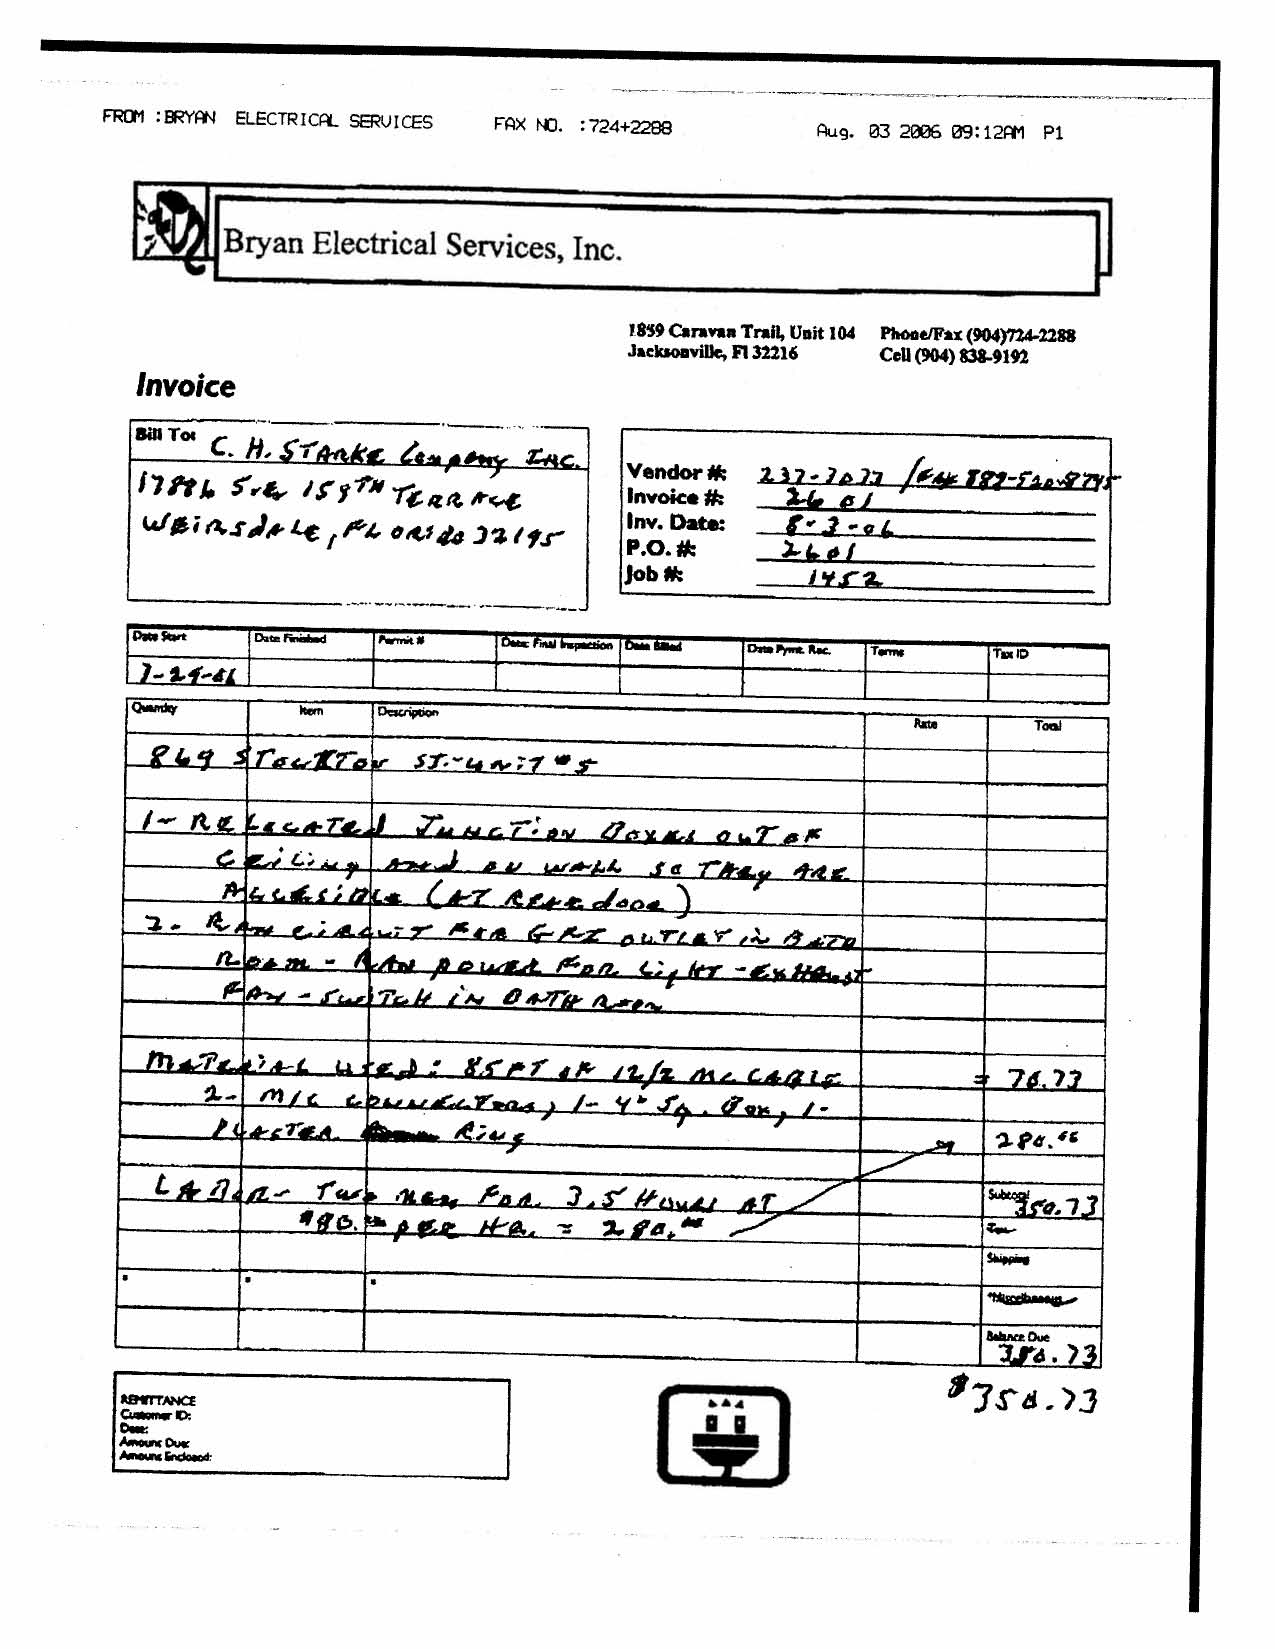 FROM :BRYAN ELECTRICAL SERVICES FAX NO. :724+2288 Aug. 03 2006 09:12AM P1
Bryan Electrical Services, Inc.
1859 Caravan Trail, Unit 104 Phone/Fax (904)724-2288
Jacksonville, Fl 32216 Cell (904) 838-9192
Invoice
Bill To: C. H. STARKE Company INC.
17886 S.E. 158TH TERRACE
WEIRSDALE, FLORIDA 32195
Vendor #: 237-7077 /FAX
Invoice #: 2601
Inv. Date: 8-3-06
P.O. #: 2601
Job #: 1452
Date Start Date Finished Permit # Date: Final Inspection Date Billed Date Pymt. Rec. Terms Tax ID
7-29-06
Quantity Item Description Rate Total
869 STOCKTON ST.-UNIT #5
1- RELOCATED JUNCTION BOXES OUT OF
CEILING AND ON WALL SO THEY ARE
ACCESIBLE (AT REAR dOOR)
2. RAN CIRCUIT FOR GFI OUTLET IN BATH
ROOM - RAN POWER FOR LIGHT - EXHAUST
FAN - SWITCH IN BATHROOM
MATERIAL USED: 85 FT OF 12/2 MC CABLE = 70.73
2- M/C CONNECTORS, 1- 4" SQ. BOX, 1-
PLASTER RING 280.00
LABOR- TWO MEN FOR 3.5 HOURS AT
$80.00 PER HR. = 280.00
Subtotal 350.73
Tax
Shipping
*Miscellaneous
Balance Due
350.73
$350.73
REMITTANCE
Customer ID:
Date:
Amount Due:
Amount Enclosed: